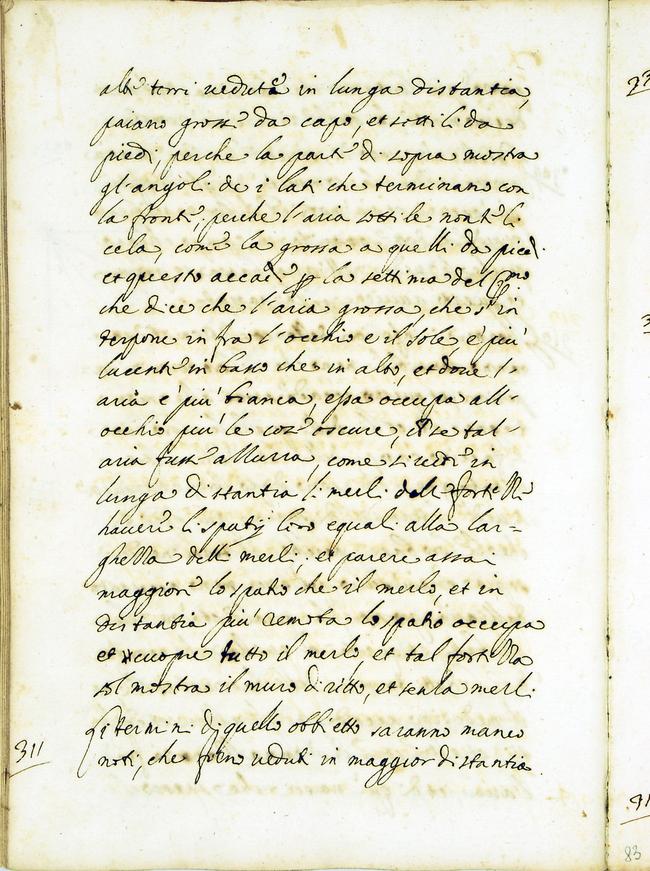 alte torri uedute in lunga distantia,
paiano grosse da capo, et sottili da
piedi, perche la parte di sopra mostra
gl'angoli de i lati che terminano con
la fronte, perche l'aria sottile non te li
cela, come la grossa a quelli da piedi.
et questo accade per la settima del pmo
che dice che l'aria grossa, che s'in
terpone in fra l'occhio e il sole, è più
lucente in basso che in alto, et doue l'
aria è più bianca, essa occupa all'
occhio più le cose oscure, che se tal'
aria fusse azzurra, come si uede in
lunga distantia li merli delle fortezze
hauere li spatij loro equali alla lar=
ghezza delli merli, et parere assai
maggiore lo spatio che il merlo, et in
distantia più remota lo spatio occupa
et cuopre tutto il merlo, et tal fortezza
sol mostra il muro diritto, et senza merli.
311
I termini di quello obbietto saranno manco
noti, che fieno ueduti in maggior distantia.
83